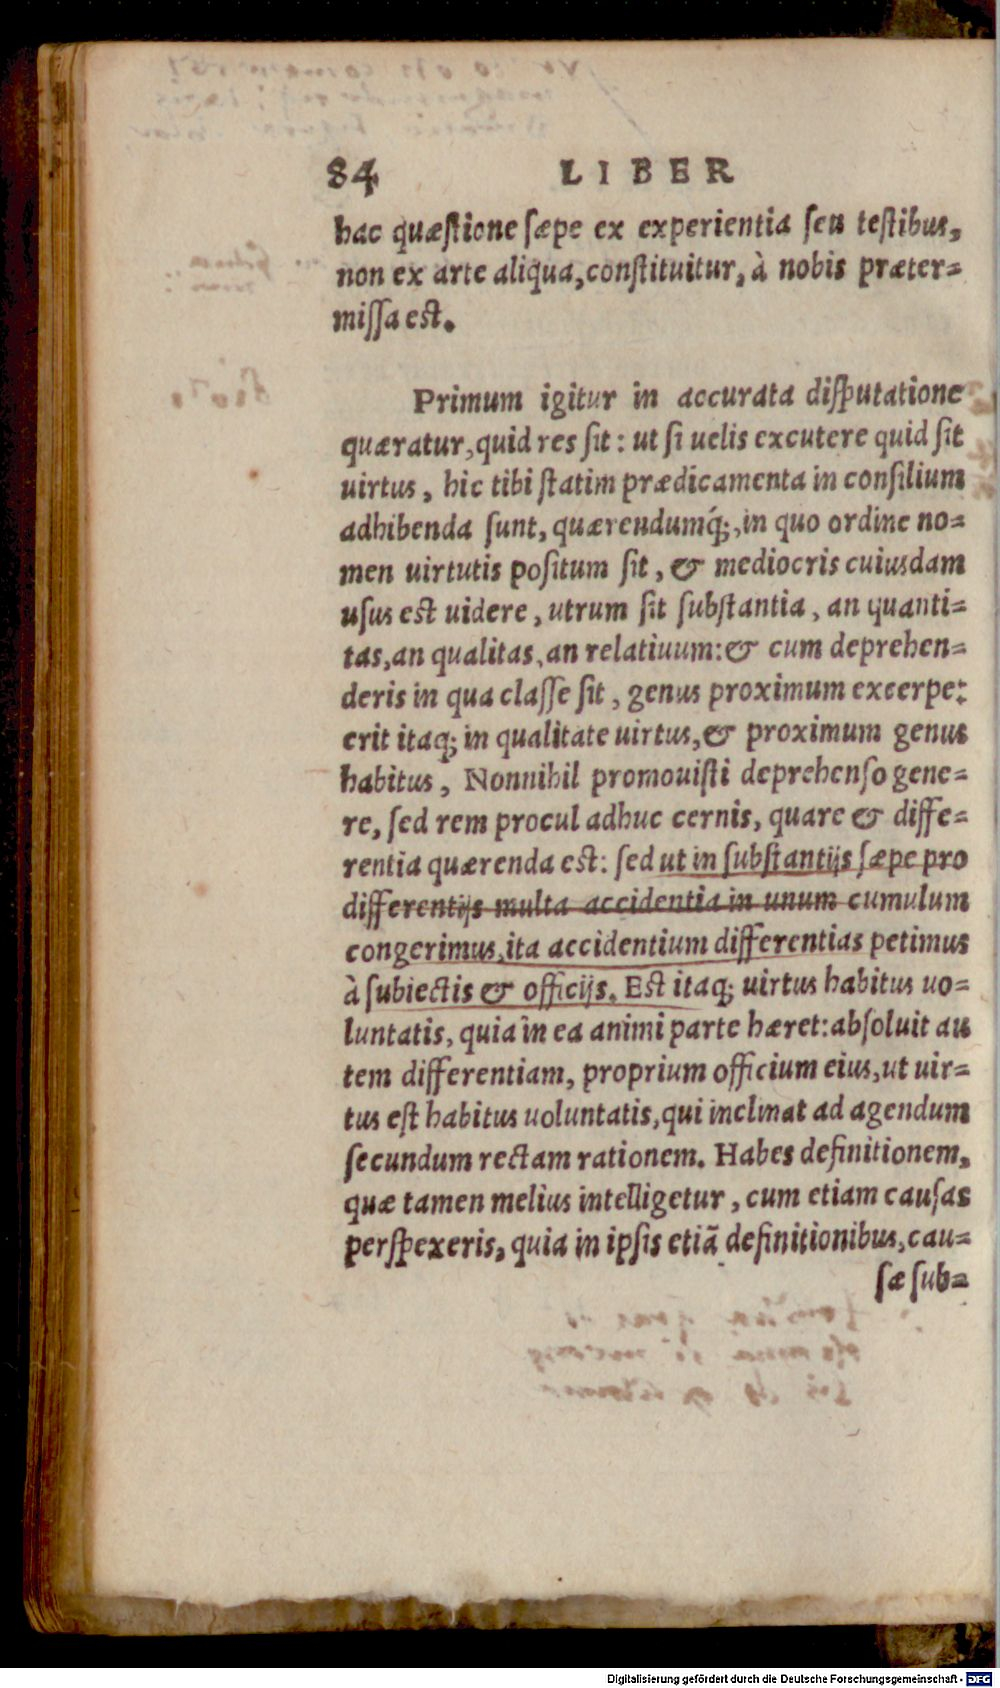 84 LIBER
hac quæſtione ſæpe ex experientia ſeu teſtibus,
non ex arte aliqua, conſtituitur, à nobis præter=
miſſa eſt.
Primum igitur in accurata diſputatione
quæratur, quid res ſit: ut ſi uelis excutere quid ſit
uirtus, hic tibi ſtatim prædicamenta in conſilium
adhibenda ſunt, quærendumq́;, in quo ordine no=
men uirtutis poſitum ſit, & mediocris cuiusdam
uſus eſt uidere, utrum ſit ſubſtantia, an quanti=
tas, an qualitas, an relatiuum: & cum deprehen=
deris in qua claſſe ſit, genus proximum excerpe:
erit itaq; in qualitate uirtus, & proximum genus
habitus, Nonnihil promouiſti deprehenſo gene=
re, ſed rem procul adhuc cernis, quare & diffe=
rentia quærenda eſt: ſed ut in ſubſtantijs ſæpe pro
differentijs multa accidentia in unum cumulum
congerimus, ita accidentium differentias petimus
à ſubiectis & officijs. Eſt itaq; uirtus habitus uo=
luntatis, quia in ea animi parte hæret: abſoluit au
tem differentiam, proprium officium eius, ut uir=
tus eſt habitus uoluntatis, qui inclinat ad agendum
ſecundum rectam rationem. Habes definitionem,
quæ tamen melius intelligetur, cum etiam cauſas
perſpexeris, quia in ipſis etiã definitionibus, cau=
ſæ ſub=
Digitalisierung gefördert durch die Deutsche Forschungsgemeinschaft - DFG